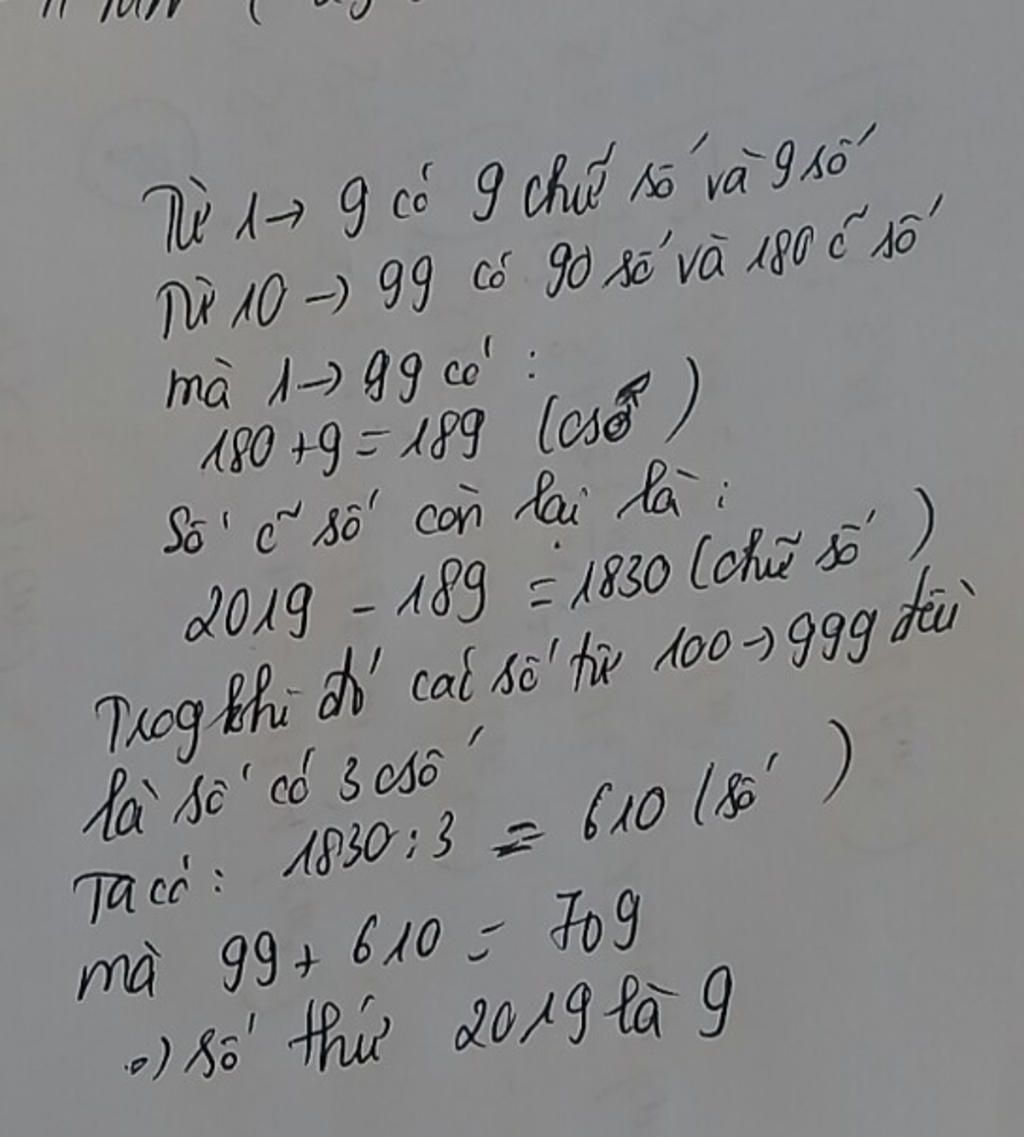 Từ 1→ 9 có 9 chữ số và 9 số
Từ 10 → 99 có 90 số và 180 c̃ số
mà 1→ 99 có :
180 + 9 = 189 (csố)
Số c̃ số còn lại là :
2019 - 189 = 1830 (chữ số)
Trog khi đó các số từ 100 → 999 đều
là số có 3 csố
Ta có : 1830 : 3 = 610 (số)
mà 99 + 610 = 709
=) số thứ 2019 là 9